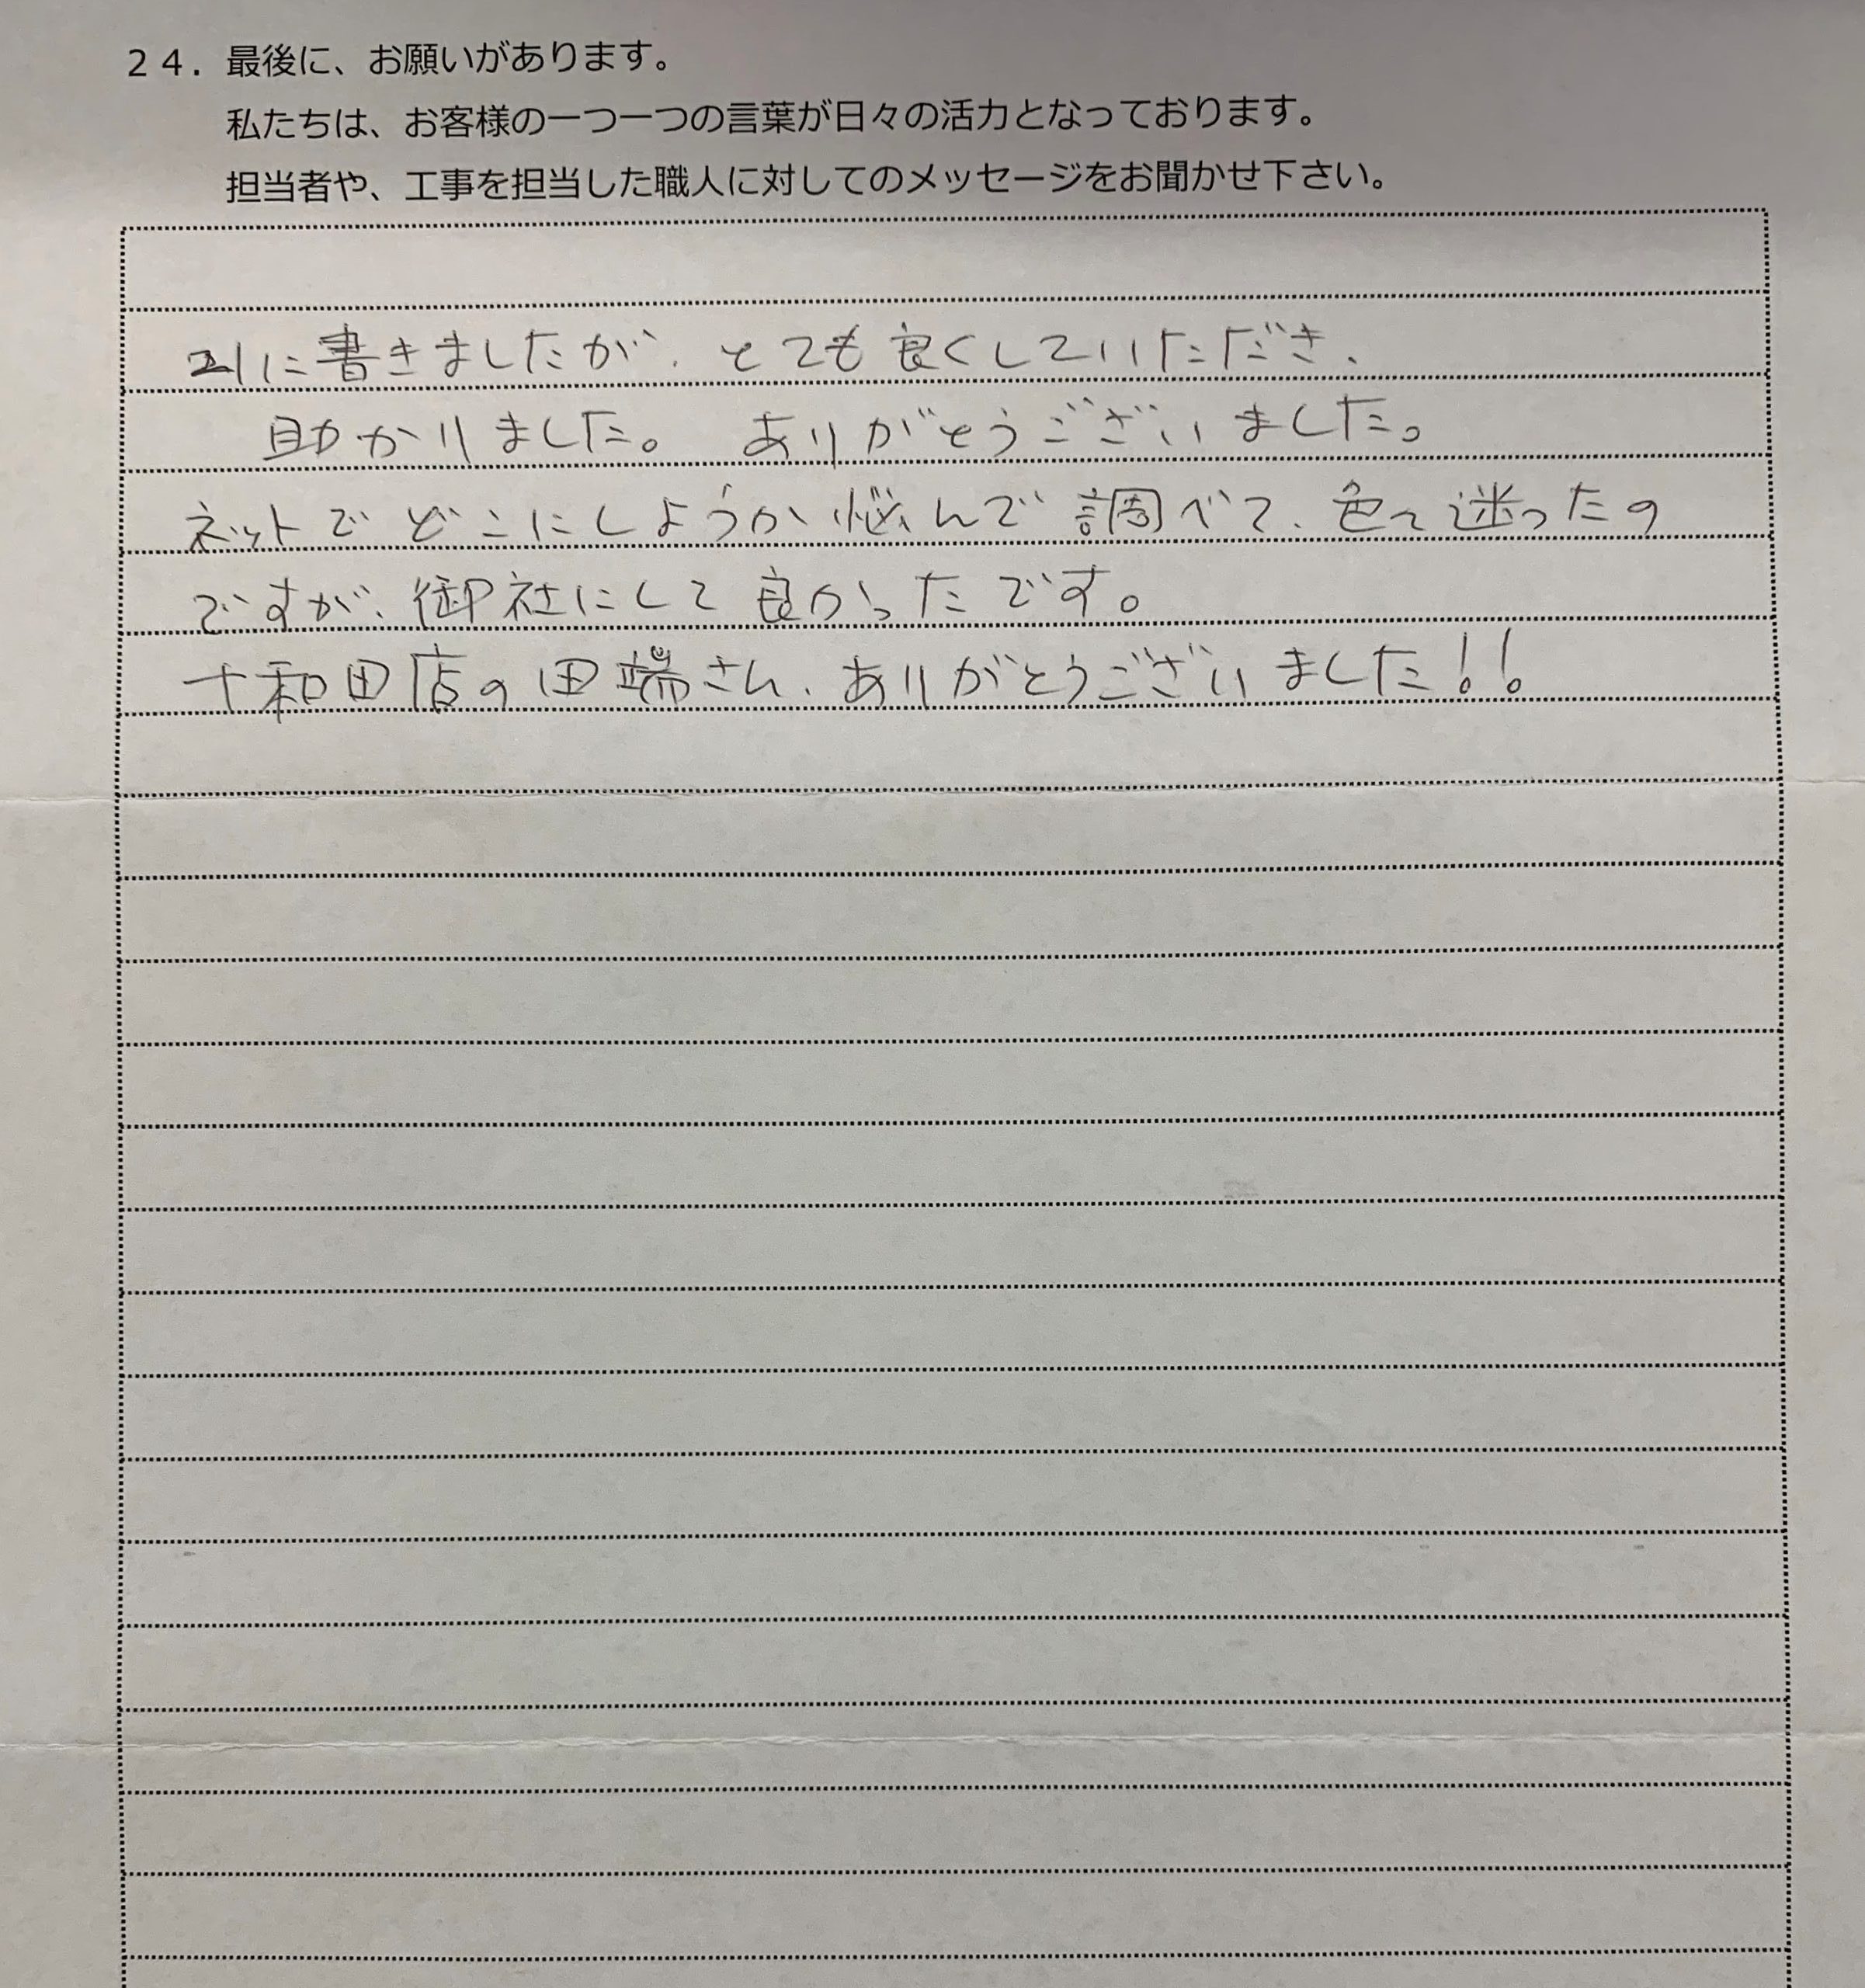 ２４．最後に、お願いがあります。
私たちは、お客様の一つ一つの言葉が日々の活力となっております。
担当者や、工事を担当した職人に対してのメッセージをお聞かせ下さい。
21に書きましたが、とても良くしていただき、
助かりました。 ありがとうございました。
ネットでどこにしようか悩んで調べて、色々迷ったの
ですが、御社にして良かったです。
十和田店の田端さん、ありがとうございました!!